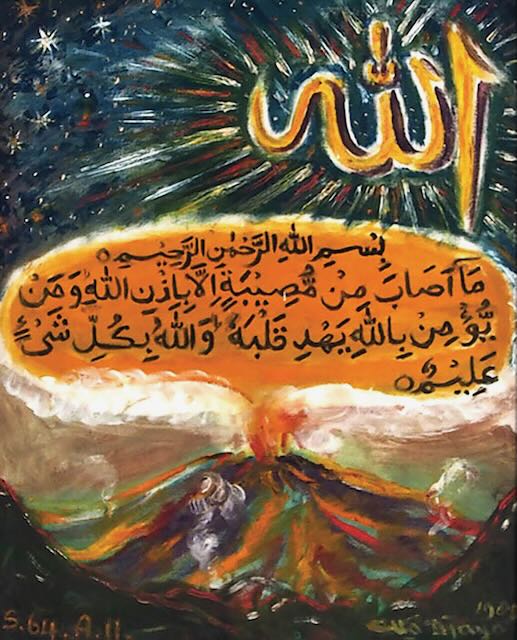 الله
بِسْمِ اللهِ الرَّحْمٰنِ الرَّحِيْمِ
مَآ اَصَابَ مِنْ مُّصِيْبَةٍ اِلَّا بِاِذْنِ اللهِ وَمَنْ
يُّؤْمِنْ بِاللهِ يَهْدِ قَلْبَهٗ وَاللهُ بِكُلِّ شَيْءٍ
عَلِيْمٌ
S.64.A.11.